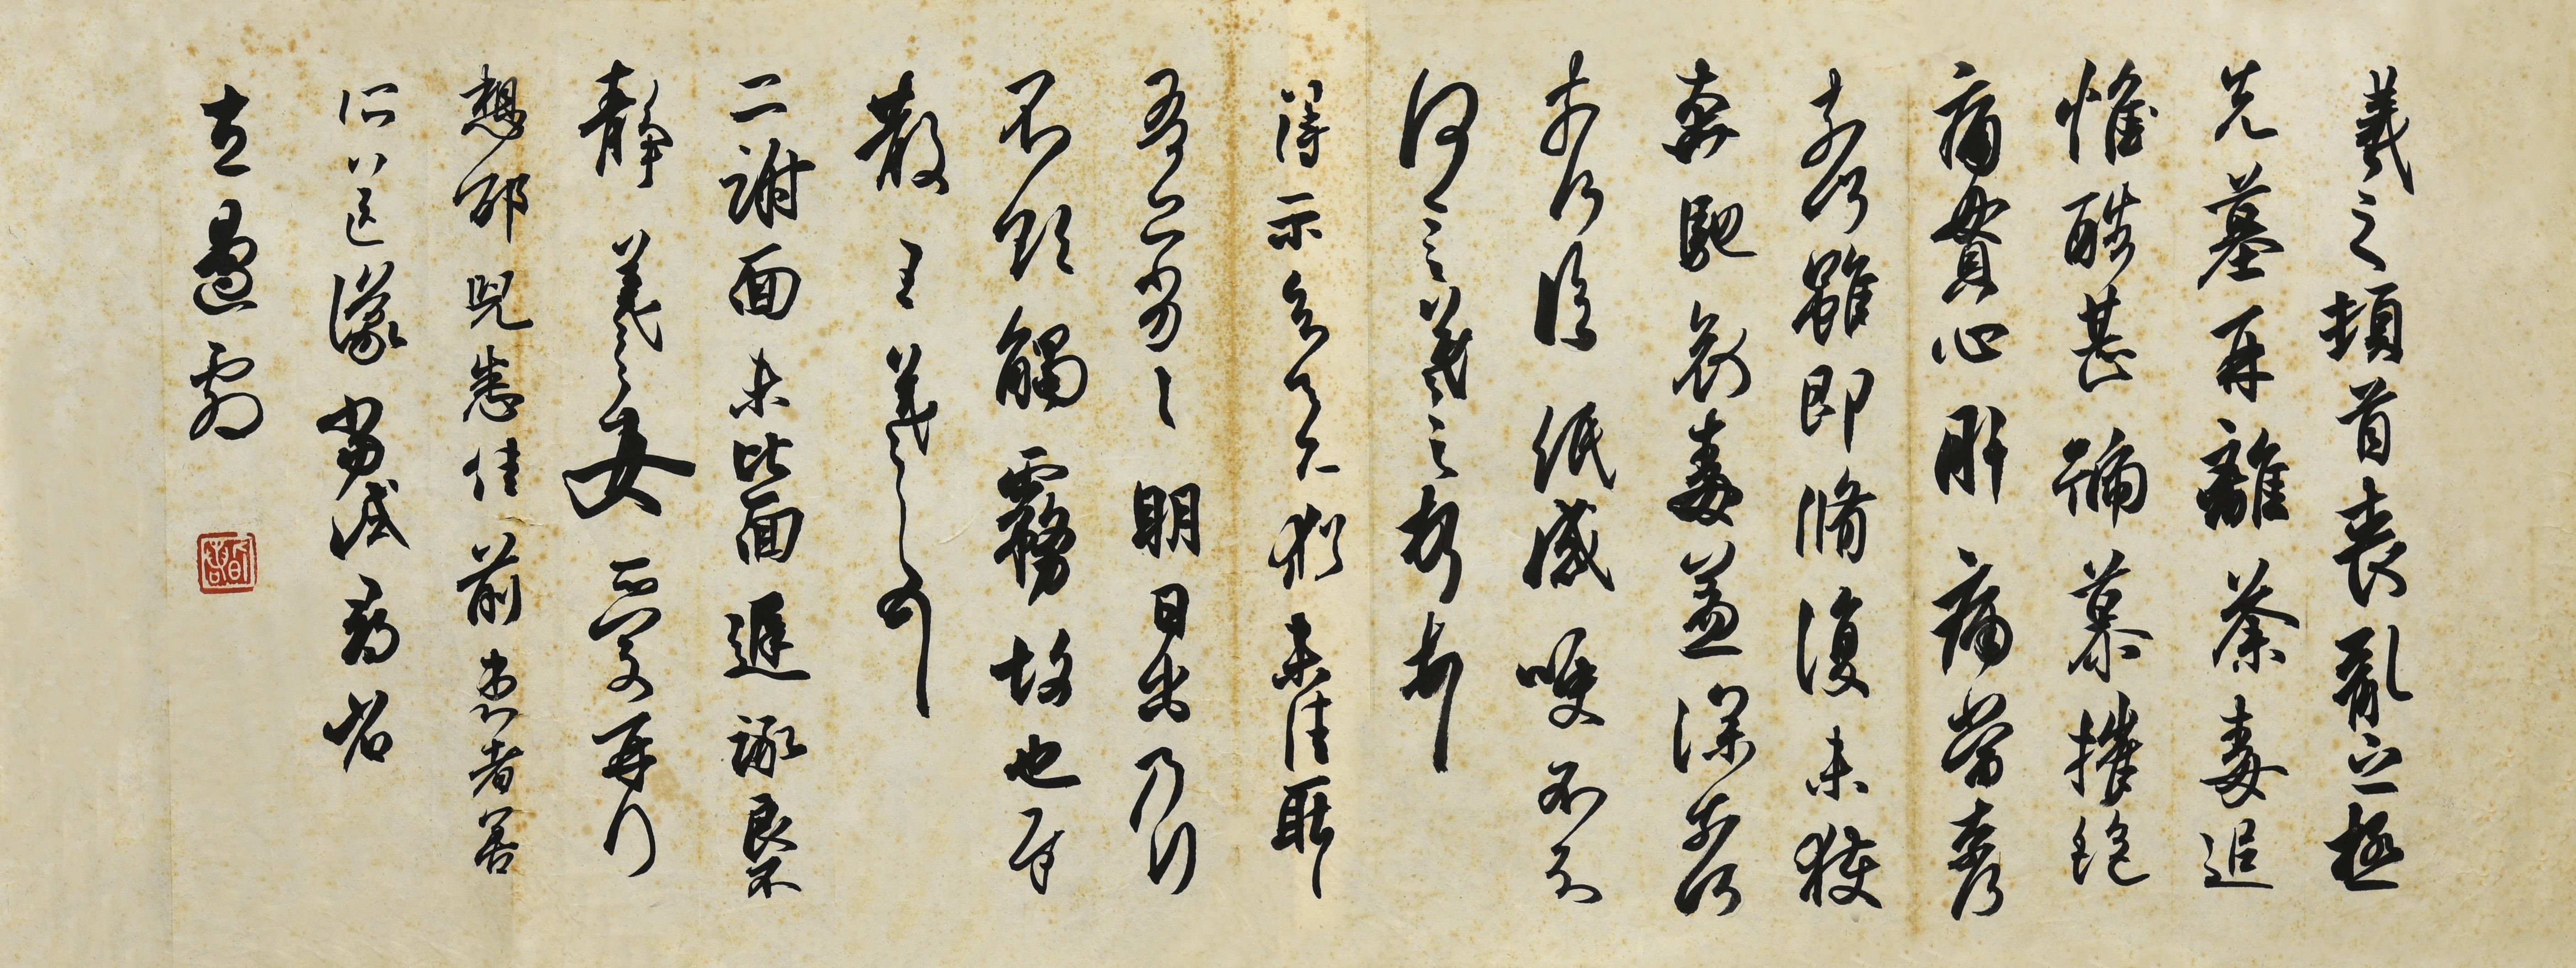 羲之頓首喪亂之極
先墓再離荼毒追
惟酷甚號慕摧絕
痛貫心肝痛當奈何
奈何雖即脩復未獲
奔馳哀毒益深奈何
奈何臨紙感哽不知
何言羲之頓首頓首
得示知足下猶未佳耿
吾亦劣劣明日出乃行
不欲觸霧故也遲
散王羲之頓首
二謝面未比面遲詠良不
靜羲之女愛再拜
想邵兒悉佳前患者善
所送議當試尋省
左邊劇